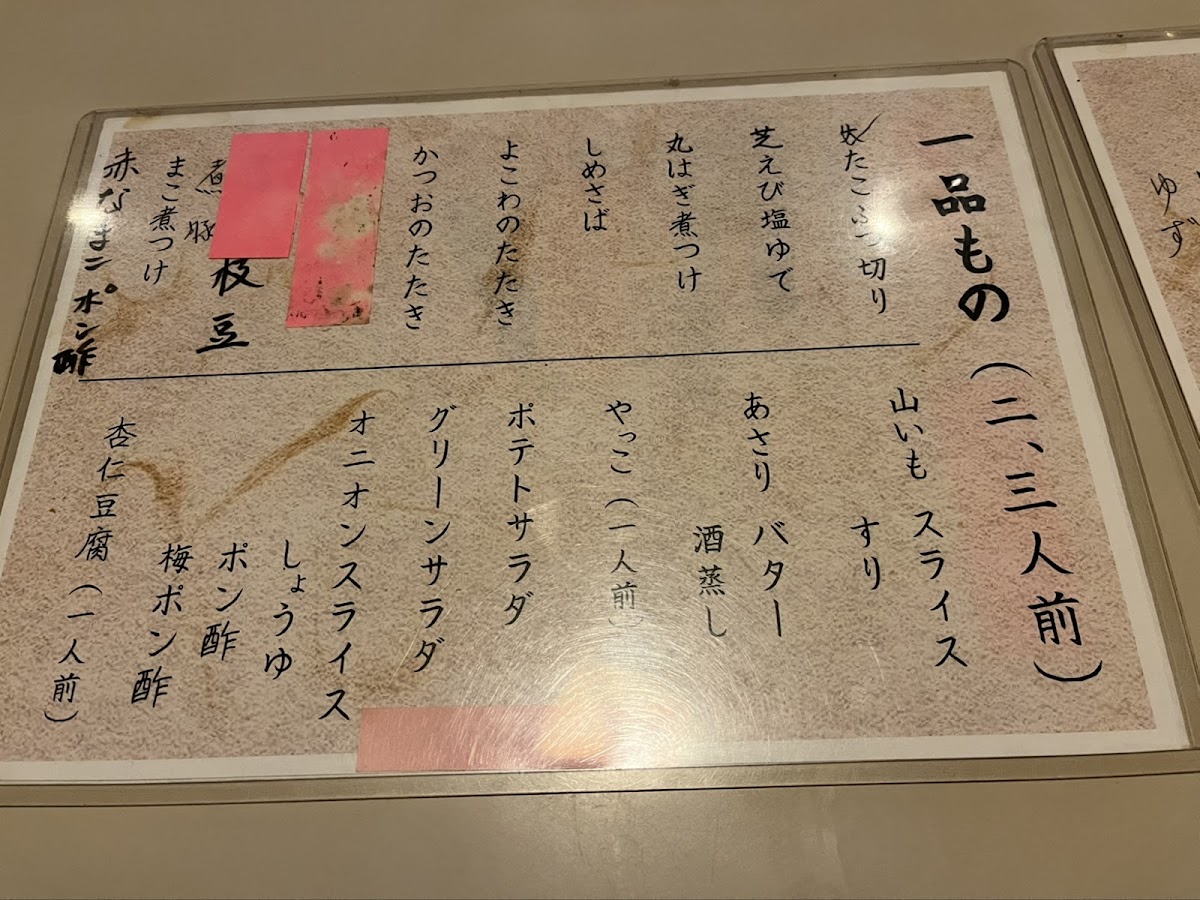 一品もの（二、三人前）
たこぶつ切り
芝えび塩ゆで
丸はぎ煮つけ
しめさば
よこわのたたき
かつおのたたき
枝豆
煮豚
まこ煮つけ
赤なまこポン酢
山いも スライス
すり
あさり バター
酒蒸し
やっこ（一人前）
ポテトサラダ
グリーンサラダ
オニオンスライス
しょうゆ
ポン酢
梅ポン酢
杏仁豆腐（一人前）
ゆず